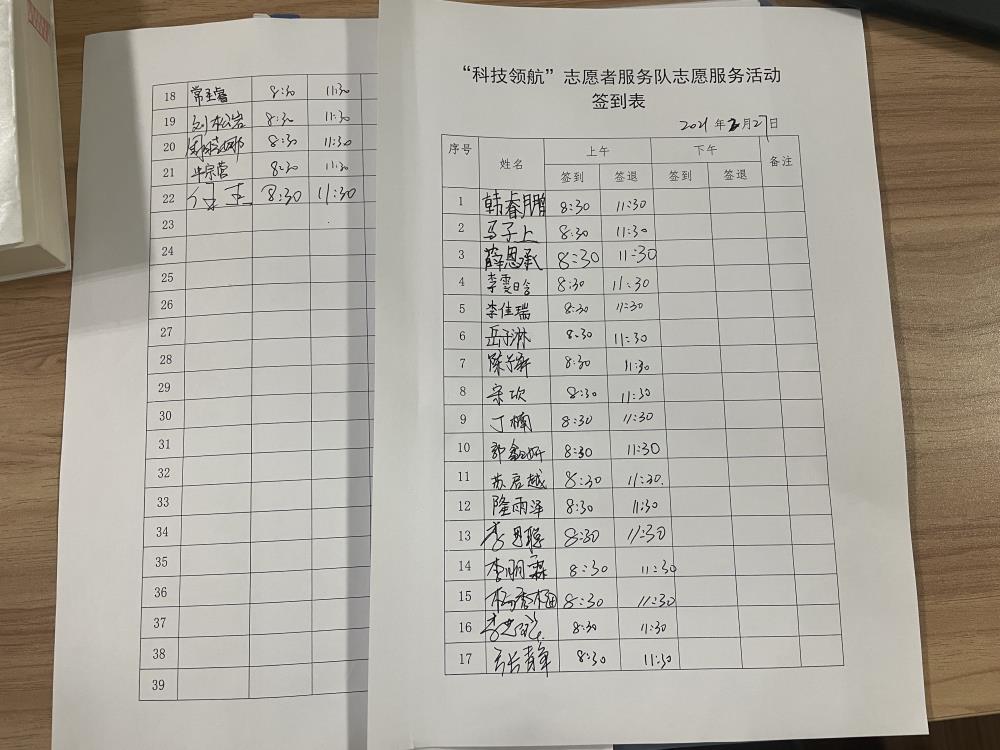 “科技领航”志愿者服务队志愿服务活动
签到表
2021 年 2 月 27 日
序号 姓名 上午 下午 备注
签到 签退 签到 签退
1 韩春鹏 8:30 11:30
2 马子上 8:30 11:30
3 薛恩承 8:30 11:30
4 李雯晗 8:30 11:30
5 李佳瑞 8:30 11:30
6 岳子淋 8:30 11:30
7 陈子新 8:30 11:30
8 宗欢 8:30 11:30
9 丁楠 8:30 11:30
10 郭鑫妍 8:30 11:30
11 苏君越 8:30 11:30.
12 隆雨泽 8:30 11:30
13 李思聪 8:30 11:30
14 李朋霖 8:30 11:30
15 杨秀梅 8:30 11:30
16 8:30 11:30
17 8:30 11:30
18 8:30 11:30
19 刘松岩 8:30 11:30
20 8:30 11:30
21 牛宗营 8:30 11:30
22 8:30 11:30
23
24
25
26
27
28
29
30
31
32
33
34
35
36
37
38
39